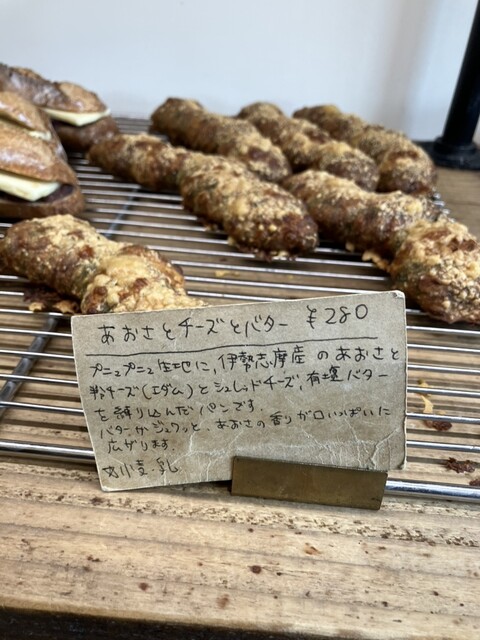 あおさとチーズとバター ¥280
プニプニ生地に、伊勢志摩産のあおさと
粉チーズ(エダム)とシュレッドチーズ、有塩バター
を練り込んだパンです。
バターがジュワッと、あおさの香りが口いっぱいに
広がります。
小麦、乳